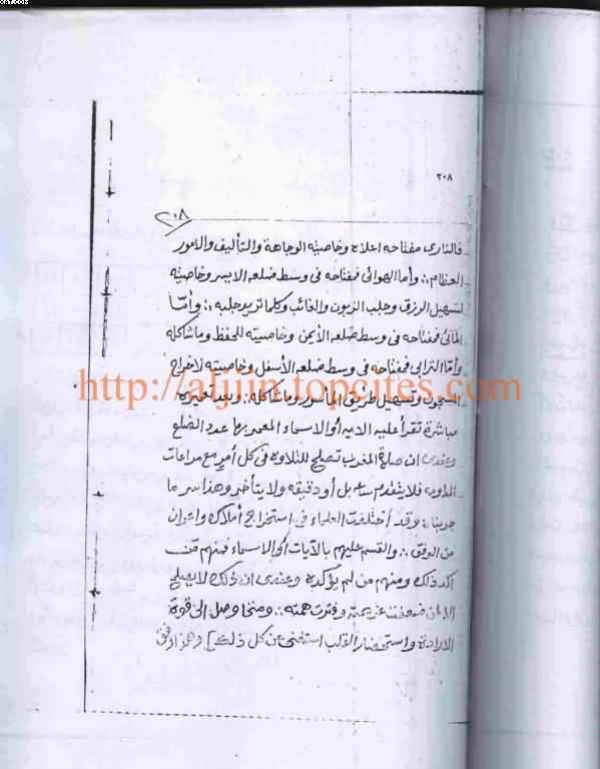 ٢٠٨
٢٠٨
فالناري مفتاحه اعلاه وخاصيته الوجاهة والتأليف والامور
العظام . وأما الهوائى فمفتاحه فى وسط ضلعه الايسر وخاصيته
لتسهيل الرزق وجلب الزبون والغائب وكلما تريد جلبه . وأمّا
المائى فمفتاحه فى وسط ضلعه الأيمن وخاصيته للحفظ وما شاكله
وأمّا الترابى فمفتاحه فى وسط ضلعه الأسفل وخاصيته لاخراج
المسجون وتسهيل طريق المأسور وما شاكله . وبعد تعميره
مباشرة تقرأ عليه الايه أو الاسماء المعمر بها عدد الضلع
وعندى ان صلاة المغرب تصلح للتلاوة فى كل أمر مع مراعات
فلا يتقدم أو دقيقه ولا يتأخر وهذا سر ما
جربناه وقد أختلفت العلماء فى استخراج أملاك واعوان
من الوفق . والقسم عليهم بالآيات أو الاسماء فمنهم من
أكد ذلك ومنهم من لم يؤكده وعندى ان ذلك لا يصلح
الا لمن ضعفت عزيمته وفترت همته . ومتى وصل الى قوة
الارادة واستحضار القلب استغنى عن كل ذلك] وهذا وفق
http://aljjin.topcites.com